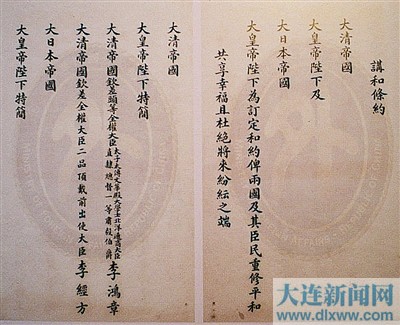 講和條約
大清帝國
大皇帝陛下及
大日本帝國
大皇帝陛下為訂定和約俾兩國及其臣民重修平和
共享幸福且杜絕將來紛紜之端
大清帝國
大皇帝陛下特簡
大清帝國欽差頭等全權大臣太子太傅文華殿大學士北洋通商大臣直隸總督一等肅毅伯爵李鴻章
大清帝國欽差全權大臣二品頂戴前出使大臣李經方
大日本帝國
大皇帝陛下特簡
大连新闻网
www.dlxww.com